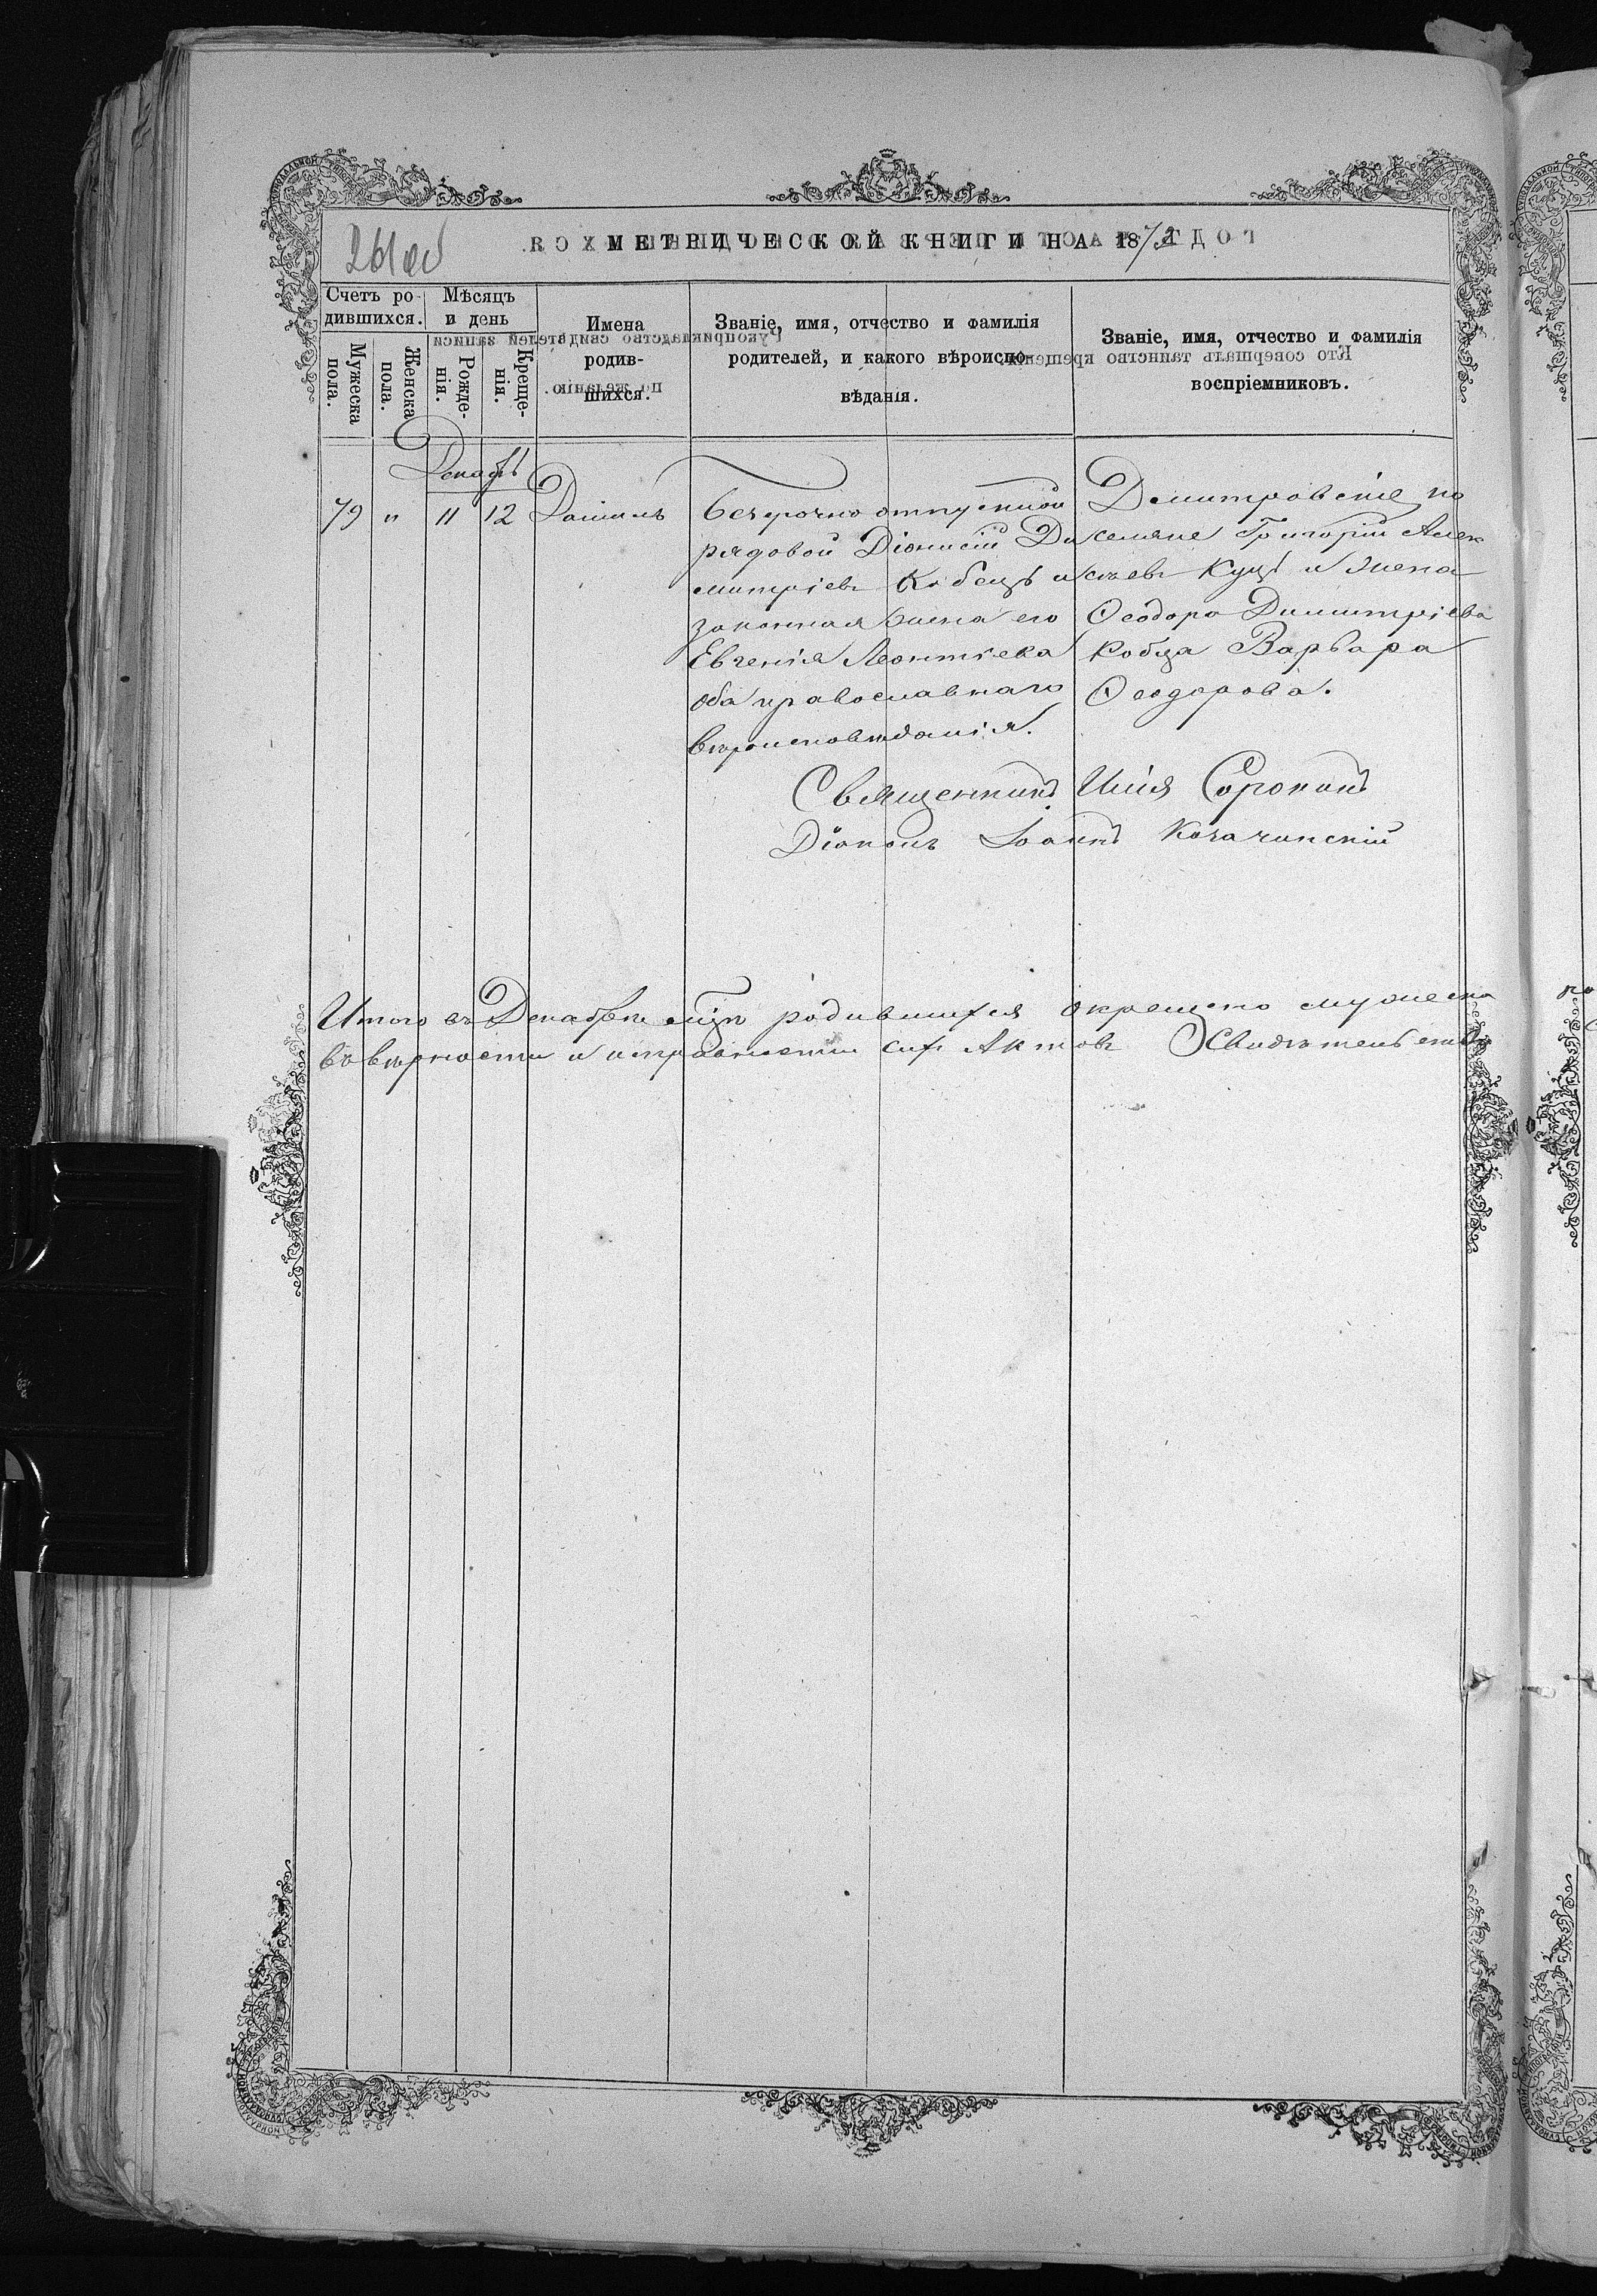 261 об
МЕТРИЧЕСКОЙ КНИГИ НА 1872
Счетъ ро-
дившихся.
Мужеска пола.
Женска пола.
Мѣсяцъ
и день
Рожде-
нія.
Креще-
нія.
Имена
родив-
шихся.
Званіе, имя, отчество и фамилія
родителей, и какого вѣроиспо-
вѣданія.
Званіе, имя, отчество и фамилія
воспріемниковъ.
Декабрь
79 " 11 12 Даніилъ
безсрочно отпускной
рядовой Діонисій Ди
митріевъ Кобецъ и
законная жена его
Евгенія Леонтіева
оба православнаго
вѣроисповѣданія.
Дмитровскіе по
селяне Григорій Алек
сѣевъ Куцъ и жена
Ѳеодора Димитріева
Кобца Варвара
Ѳеодорова.
Священникъ Илія Сорокинъ
Діаконъ Іоаннъ
Итого въ Декабрѣ мцѣ родившихся окрещено мужеска
въ вѣрности и исправности сихъ Актовъ Свидѣтельству